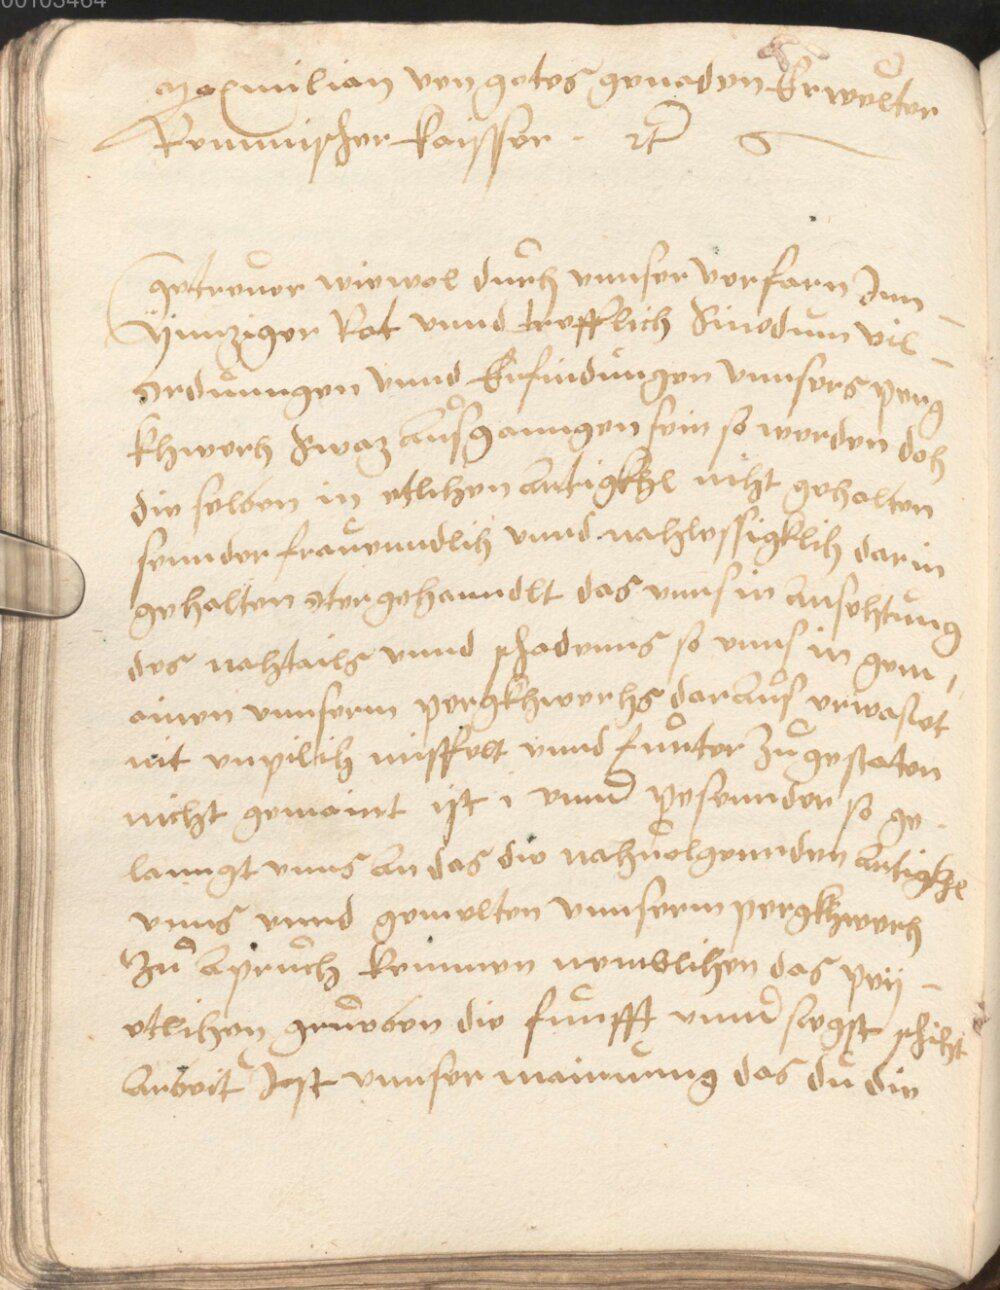 00103464
Maximilian von gotes genaden Erwelter
Romischer kaisser . etc
Getrewer wiewol durch unnser vorfarn Inn
zeitiger Rat unnd trefflich Sinodum vil
ordnungen unnd Erfindungen unnsers perg
khwerch Swaz Ausganngen sein so werden doch
die selben in etlichen Artigkhl nicht gehalten
sennder fravenndlich unnd nachlessigklich darin
gehalten oder gehanndlt das unns in Ansehung
des nachtails unnd schadenns so unns in gem
ainen unnserm pergkhwerchs daraus erwachst
nit unpilich missfelt unnd furter zu gestaten
nicht gemaint ist . unnd pesonnder so ge
lanngt unns An das die nachvolgennden Artigkhl
unns unnd gemelten unnserm pergkhwerch
zu Aprúch komen nemblichen das pey
etlichen grueben die funfft unnd sechst schicht
Arbeit Ist unnser mainung das du die